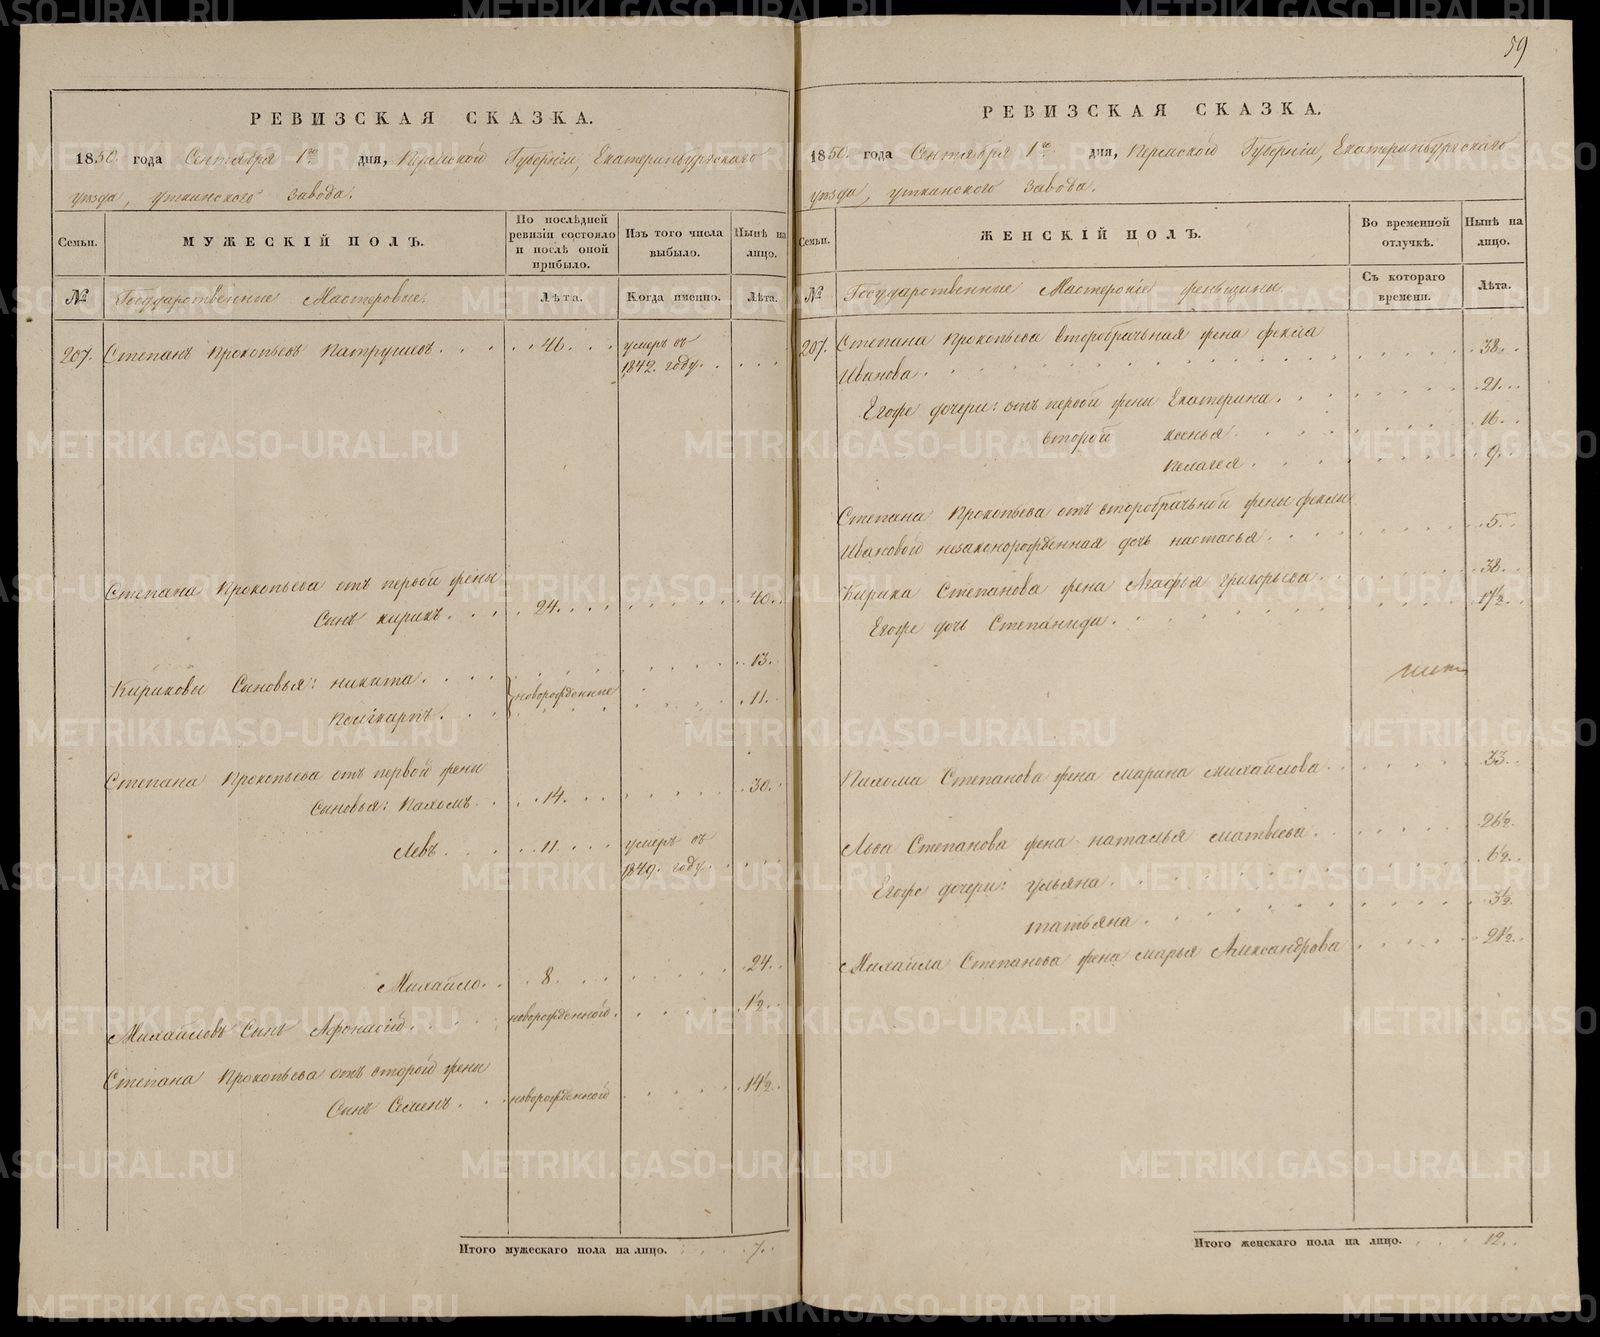 59
РЕВИЗСКАЯ СКАЗКА.
1850. года Сентября 1го дня, Пермской Губерніи, Екатеринбургскаго
уѣзда, уткинскаго завода.
Семьи.
МУЖЕСКІЙ ПОЛЪ.
По послѣдней ревизіи состояло и послѣ оной прибыло.
Изъ того числа выбыло.
Нынѣ на лицо.
№
Государственные Мастеровые.
Лѣта.
Когда именно.
Лѣта.
207. Степанъ Прокопьевъ Патрушев. . . . . 46. . . умеръ въ
1842. году. . . . .
Степана Прокопьева отъ первой жены
Сынъ кирикъ. . . . 24. . . . 40.
Кириковы Сыновья: никита. . . . 13.
новорожденные
Поликарпъ. . . . 11.
Степана Прокопьева отъ первой жены
Сыновья: Пахомъ. . . 14. . . . 30.
Левъ. . . . 11. . . . умеръ въ
1849. году. . . .
Михайло. . . 8. . . . 24.
Михайловъ Сынъ Афонасій. . . . новорожденной. . . . 1½.
Степана Прокопьева отъ второй жены
Сынъ Семенъ. . . новорожденной . . . . 14½.
Итого мужескаго пола на лицо. . . . . 7.
РЕВИЗСКАЯ СКАЗКА.
1850. года Сентября 1го дня, Пермской Губерніи, Екатеринбургскаго
уѣзда, уткинскаго завода.
Семьи.
ЖЕНСКІЙ ПОЛЪ.
Во временной отлучкѣ.
Нынѣ на лицо.
№
Государственные Мастерскіе женьщины
Съ котораго времени.
Лѣта.
207. Степана Прокопьева второбрачная жена фекла
Иванова. . . . 38.
Егоже дочери: отъ первой жены Екатерина. . . . 21.
второй ксенья. . . . 16.
пелагея. . . . 9.
Степана Прокопьева отъ второбрачной жены феклы
Ивановой незаконорожденная дочь настасья. . . . 5.
Кирика Степанова жена Агафья григорьева. . . . 38.
Егоже дочь Степанида. . . . 17½.
Пахома Степанова жена марина михайлова. . . . 33.
Льва Степанова жена наталья матвѣева. . . . 26½.
Егоже дочери: ульяна. . . . 6½.
татьяна. . . . 3½.
Михайла Степанова жена марья Александрова . . . . 21½.
Итого женскаго пола на лицо. . . . 12.
METRIKI.GASO-URAL.RU